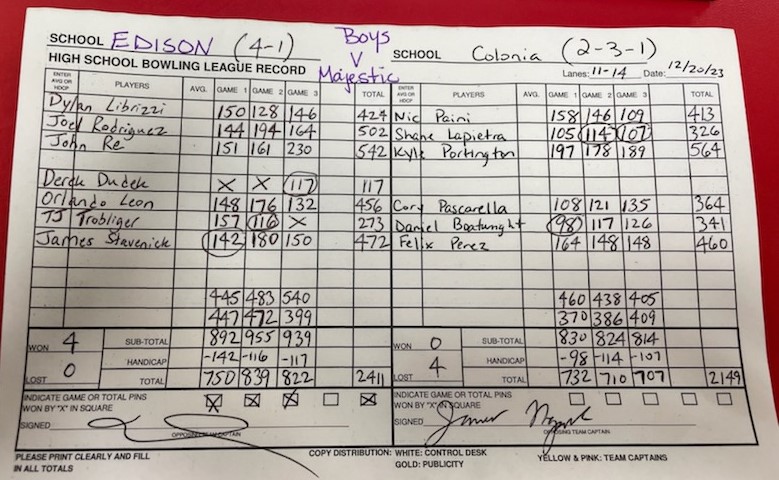 SCHOOL EDISON (4-1) Boys V Majestic SCHOOL Colonia (2-3-1)
HIGH SCHOOL BOWLING LEAGUE RECORD Lanes: 11-14 Date: 12/20/23
ENTER AVG OR HDCP PLAYERS AVG. GAME 1 GAME 2 GAME 3 TOTAL ENTER AVG OR HDCP PLAYERS AVG. GAME 1 GAME 2 GAME 3 TOTAL
Dylan Librizzi 150 128 146 424 Nic Paini 158 146 109 413
Joel Rodriguez 144 194 164 502 Shane Lapietra 105 114 107 326
John Re 151 161 230 542 Kyle Portington 197 178 189 564
Derek Dudek X X 117 117
Orlando Leon 148 176 132 456 Cory Pascarella 108 121 135 364
TJ Trobliger 157 116 X 273 Daniel Boatwright 98 117 126 341
James Slavenick 142 180 150 472 Felix Perez 164 148 148 460
445 483 540 460 438 405
447 472 399 370 386 409
WON 4 SUB-TOTAL 892 955 939 WON 0 SUB-TOTAL 830 824 814
HANDICAP -142 -116 -117 HANDICAP -98 -114 -107
LOST 0 TOTAL 750 839 822 2411 LOST 4 TOTAL 732 710 707 2149
INDICATE GAME OR TOTAL PINS WON BY "X" IN SQUARE X X X X INDICATE GAME OR TOTAL PINS WON BY "X" IN SQUARE
SIGNED OPPOSING TEAM CAPTAIN SIGNED OPPOSING TEAM CAPTAIN
PLEASE PRINT CLEARLY AND FILL IN ALL TOTALS COPY DISTRIBUTION: WHITE: CONTROL DESK GOLD: PUBLICITY YELLOW & PINK: TEAM CAPTAINS